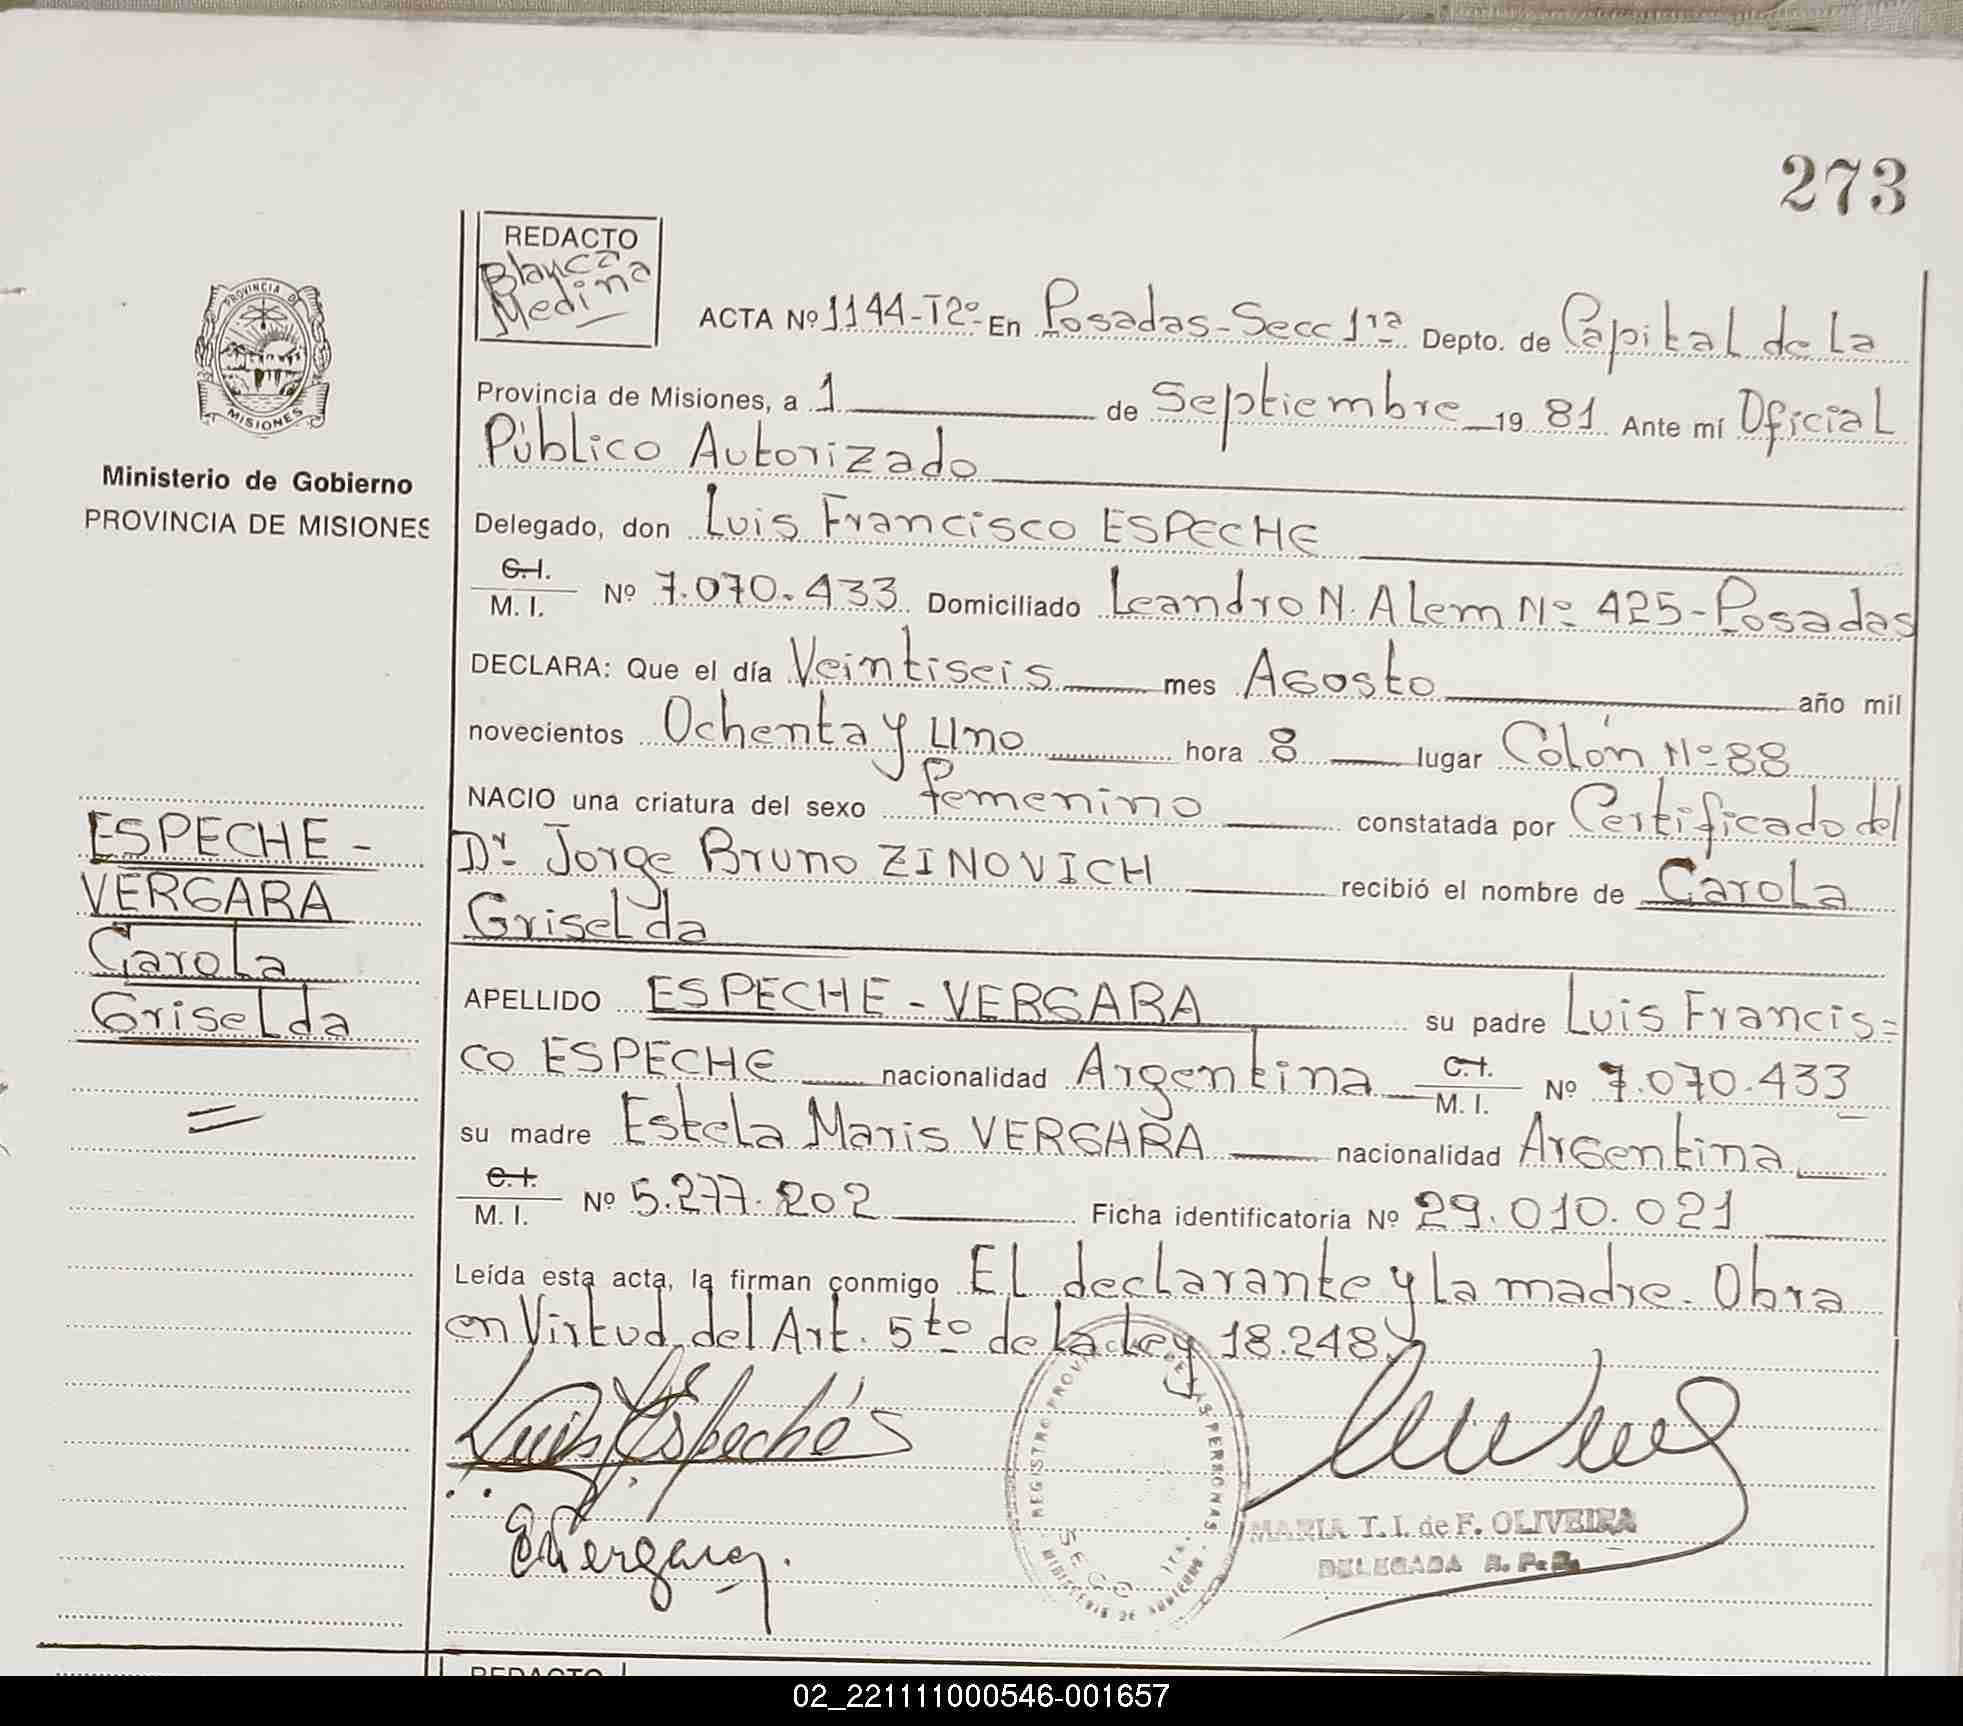 273
REDACTO
Blanca
Medina
PROVINCIA DE
MISIONES
Ministerio de Gobierno
PROVINCIA DE MISIONES
ACTA Nº 1144-T2º- En Posadas-Secc 1ra Depto. de Capital de la
Provincia de Misiones, a 1 de Septiembre 19 81 Ante mí Oficial
Público Autorizado
Delegado, don Luis Francisco ESPECHE
C.I.
M. I. Nº 7.070.433 Domiciliado Leandro N. Alem Nº 425-Posadas
DECLARA: Que el día Veintiseis mes Agosto año mil
novecientos Ochenta y Uno hora 8 lugar Colón Nº 88
NACIO una criatura del sexo femenino constatada por Certificado del
Dr. Jorge Bruno ZINOVICH recibió el nombre de Carola
Griselda
APELLIDO ESPECHE - VERGARA su padre Luis Francis=
co ESPECHE nacionalidad Argentina C.I.
M. I. Nº 7.070.433
su madre Estela Maris VERGARA nacionalidad Argentina
C.I.
M. I. Nº 5.277.202 Ficha identificatoria Nº 29.010.021
Leída esta acta, la firman conmigo El declarante y la madre. Obra
en Virtud del Art. 5to de la Ley 18.248.
ESPECHE -
VERGARA
Carola
Griselda
Luis Espeche
EVergara.
REGISTRO PROV DE LAS PERSONAS
SECC 1ra.
MARIA T. I. de F. OLIVEIRA
DELEGADA R. P. P.
REDACTO
02_221111000546-001657